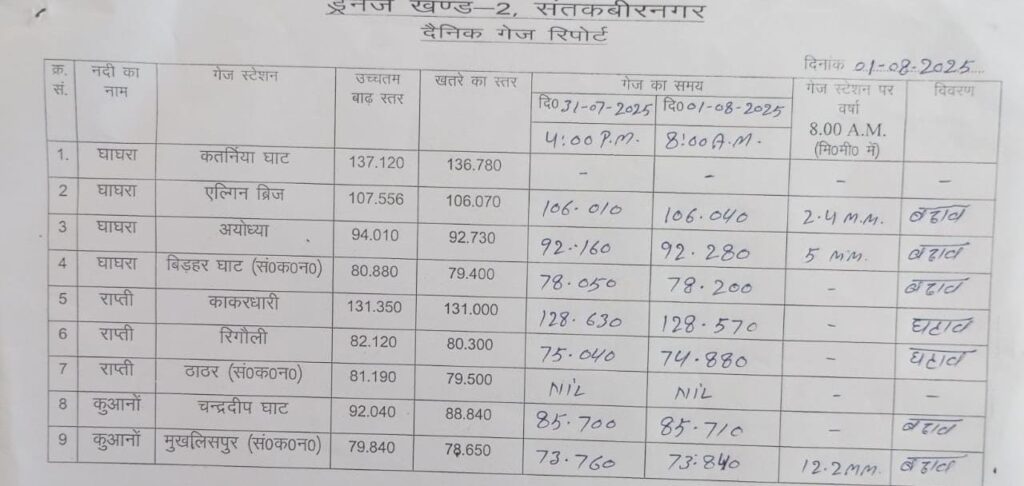 ड्रेनेज खण्ड–2, संतकबीरनगर
दैनिक गेज रिपोर्ट
दिनांक 01-08-2025
क्र. सं. नदी का नाम गेज स्टेशन उच्चतम बाढ़ स्तर खतरे का स्तर गेज का समय गेज स्टेशन पर वर्षा 8.00 A.M. (मि0मी0 में) विवरण
दि0 31-07-2025 दि0 01-08-2025
4:00 P.M. 8:00 A.M.
1. घाघरा कतर्निया घाट 137.120 136.780 – – – –
2 घाघरा एल्गिन ब्रिज 107.556 106.070 106.010 106.040 2.4 M.M. बढाव
3 घाघरा अयोध्या 94.010 92.730 92.160 92.280 5 M.M. बढाव
4 घाघरा बिड़हर घाट (सं0क0न0) 80.880 79.400 78.050 78.200 – बढाव
5 राप्ती काकरधारी 131.350 131.000 128.630 128.570 – घटाव
6 राप्ती रिगौली 82.120 80.300 75.040 74.880 – घटाव
7 राप्ती ठाठर (सं0क0न0) 81.190 79.500 NIL NIL – –
8 कुआनों चन्द्रदीप घाट 92.040 88.840 85.700 85.710 – बढाव
9 कुआनों मुखलिसपुर (सं0क0न0) 79.840 78.650 73.760 73.840 12.2 M.M. बढाव